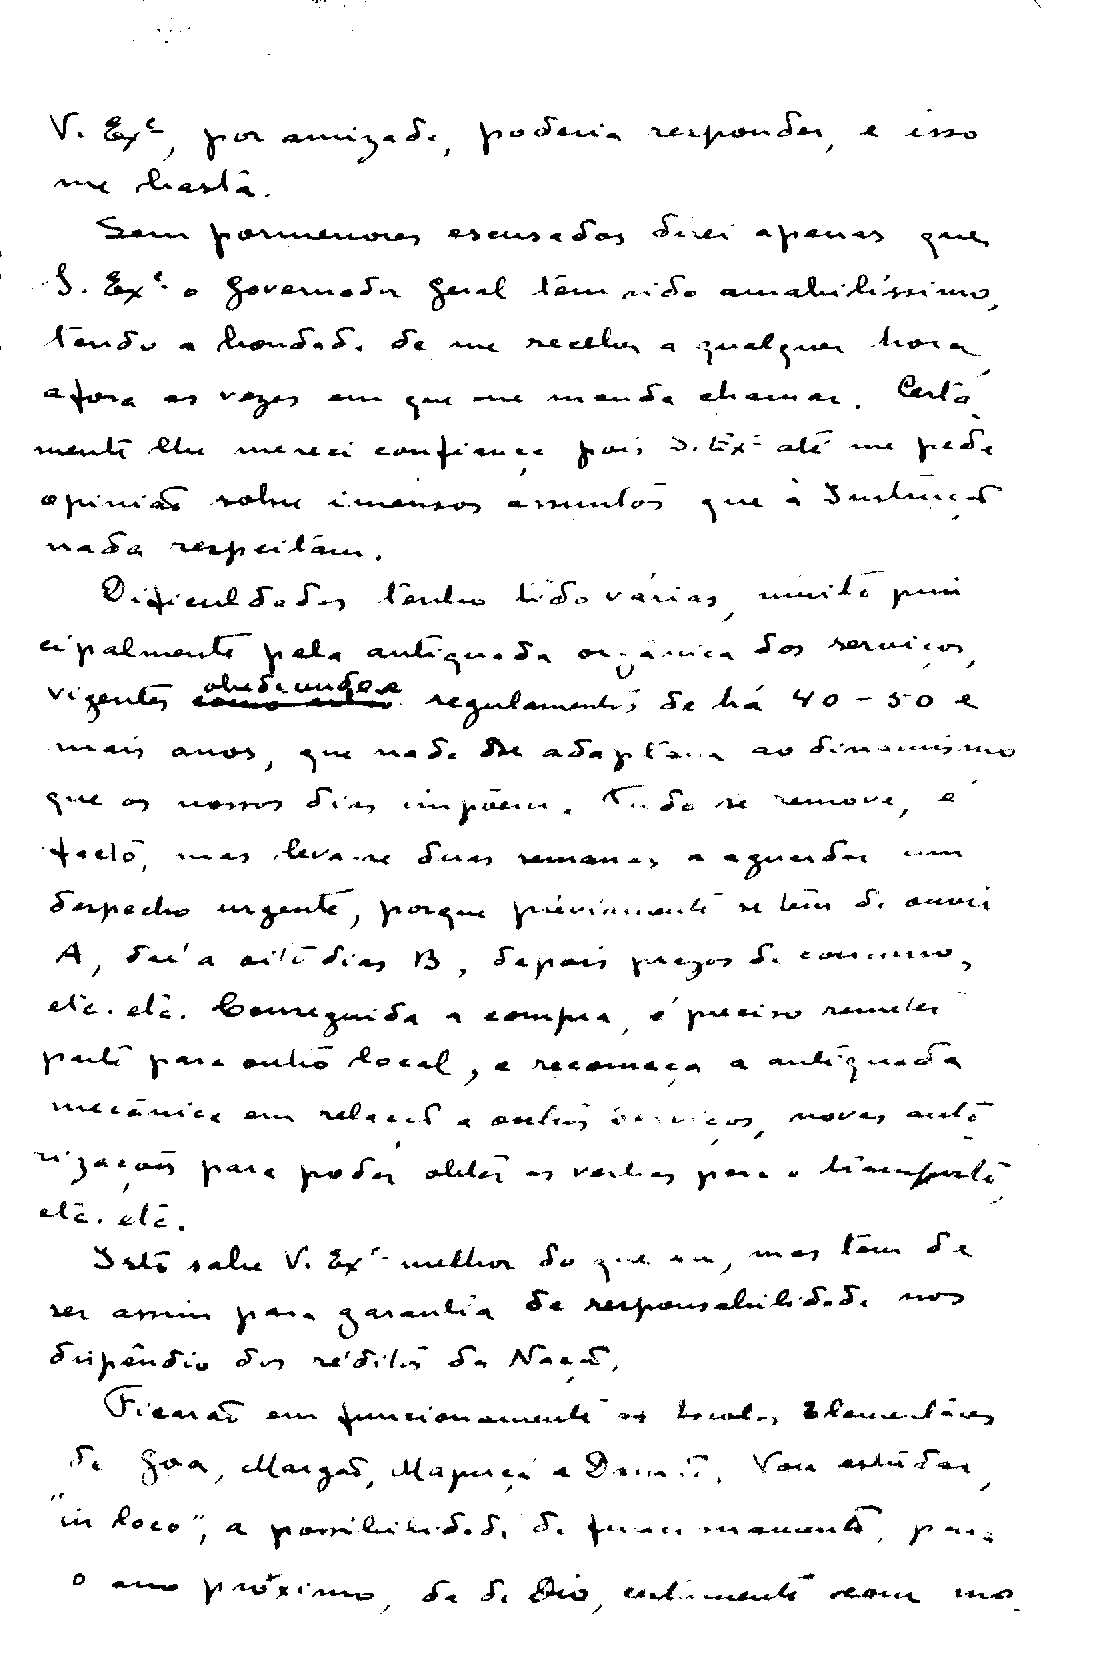 V. Ex.ª, por amizade, poderia responder, e isso
me basta.
Sem pormenores escusados direi apenas que
S. Ex.ª o Governador Geral tem sido amabilíssimo,
tendo a bondade de me receber a qualquer hora,
afora as vezes em que me manda chamar. Certa
mente lhe mereci confiança pois S. Ex.ª até me pede
opinião sobre imensos assuntos que à Instrução
nada respeitam.
Dificuldades tenho tido várias, muito prin
cipalmente pela antiquada orgânica dos serviços,
vigentes obedecendo a regulamentos de há 40 - 50 e
mais anos, que nada se adaptam ao dinamismo
que os nossos dias impõem. Tudo se remove, é
facto, mas leva-se duas semanas a aguardar um
despacho urgente, porque préviamente se tem de ouvir
A, daí a oito dias B, depois prazos de concurso,
etc. etc. Conseguida a compra, é preciso remeter
parte para outro local, e recomeça a antiquada
mecânica em relação a outros serviços, novas auto
rizações para poder obter as verbas para o transporte,
etc. etc.
Isto sabe V. Ex.ª melhor do que eu, mas tem de
ser assim para garantia de responsabilidade nos
dispêndio dos réditos da Nação.
Ficarão em funcionamento as Escolas Elementares
de Goa, Margão, Mapuçá e Damão. Vou estudar,
"in loco", a possibilidade de funcionamento, para
o ano próximo, da de Dio, certamente com mo-